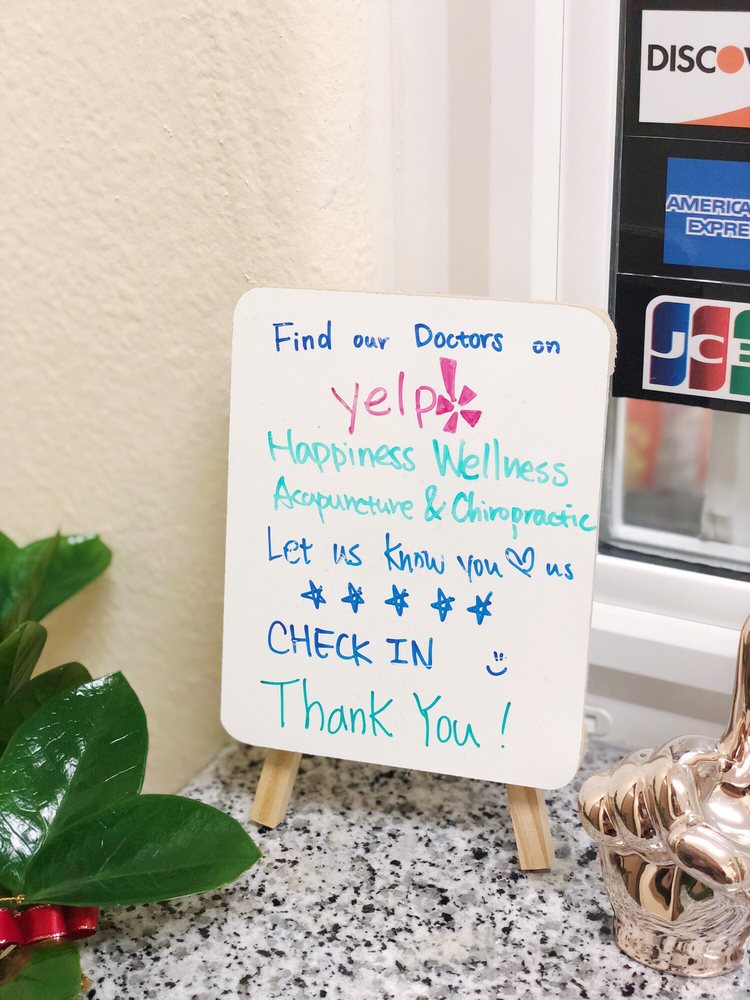 Find our Doctors on
yelp
Happiness Wellness
Acupuncture & Chiropractic
Let us know you ♡ us
☆ ☆ ☆ ☆ ☆
CHECK IN
Thank You !
DISCOV
AMERICA
EXPRE
JCB